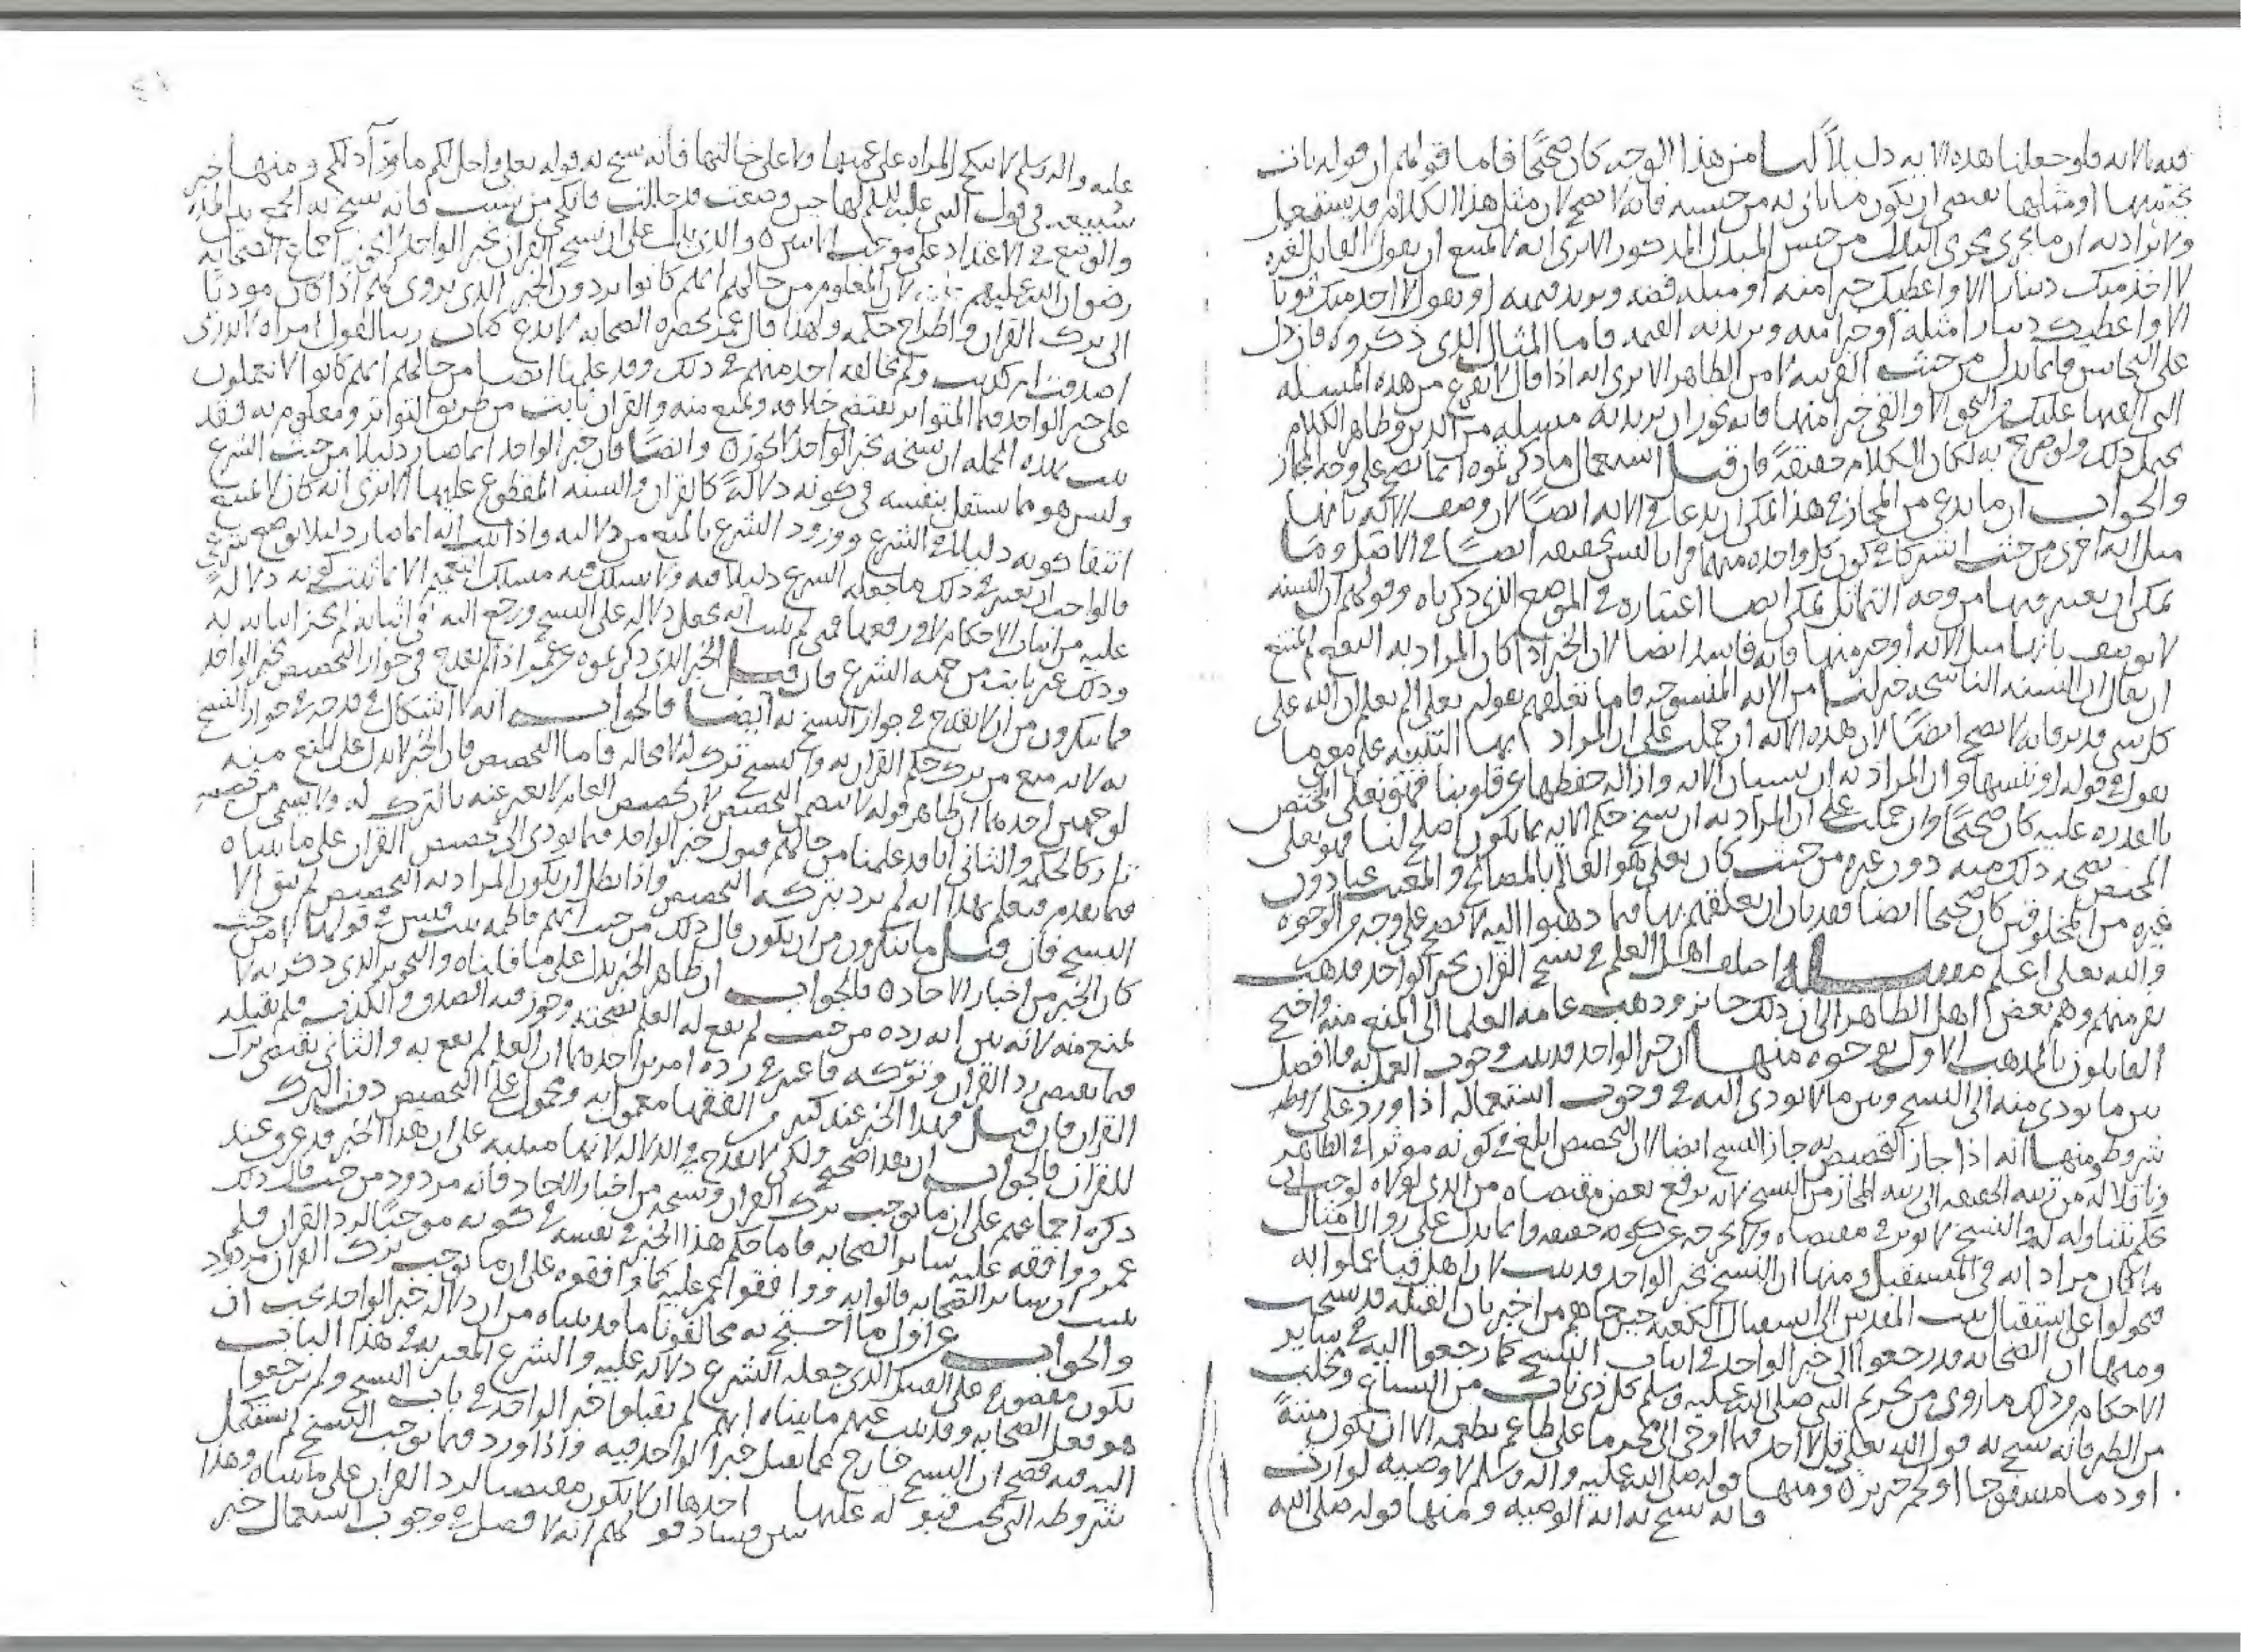 فيه بالآية فلو جعلنا هذه الآية دليلاً لنا من هذا الوجه كان صحيحًا فاما قولهم ان قوله نات
بخير منها او مثلها يقتضي ان يكون ما ياتي به من جنسه فانه لا يصح لان مثل هذا الكلام قد يستعمل
ولا يراد به ان ما يجري مجرى البدل من جنس المبدل المذكور الا ترى انه لا يمتنع ان يقول القايل لغيره
لا اخذ منك دينارا الا واعطيك خيرا منه او مثله فضه ويريد قيمته او يقول لا اخذ منك ثوبا
الا واعطيك دينارا مثله او خيرا منه ويريد به القيمه فاما المثال الذي ذكروه فان دل
على التجانس فانما يدل من حيث القرينه لا من الظاهر الا ترى انه اذا قال لا تفرغ من هذه المسله
التي القيها عليك من النحو الا والقي خيرا منها فانه يجوز ان يريد به مسله من الدين وظاهر الكلام
يحتمل ذلك ولو صرح به لكان الكلام حقيقةً فان قيل استعمال ما ذكرتموه انما يصح على وجه المجاز
والجواب ان ما يدعى من المجاز في هذا المكان يدعا في الايه ايضًا لان وصف الايه بانها
مثل ايه اخرى من حيث اشتركا في كون كل واحده منهما قرانا ليس بحقيقه ايضًا في الاصل وما
يمكن ان يعتبر فيها من وجه التماثل يمكن ايضا اعتباره في الموضع الذي ذكرناه وقولهم ان السنه
لا توصف بانها مثل الايه او خير منها فانه فاسد ايضا لان الخير اذا كان المراد به النفع لم يمتنع
ان يقال ان السنه الناسخه خير لنا من الايه المنسوخه فاما تعلقهم بقوله تعلى الم تعلم ان الله على
كل شي قدير فانه لا يصح ايضًا لان هذه الايه ان حملت على ان المراد بها التنبيه على معنى ما
يقول في قوله او ننسها وان المراد به ان نسيان الايه وازاله حفظها عن قلوبنا فهو تعلى المختص
بالقدره عليه كان صحيحًا وان حملت على ان المراد به ان نسخ حكم الايه بما يكون اصلح لنا فهو تعلى
المختص بصحه ذلك منه دون غيره من حيث كان تعلى هو العالم بالمصالح والمغيب عنا دون
غيره من المخلوقين كان صحيحا ايضا فقد بان ان تعلقهم بها فيما ذهبوا اليه لا يصح على وجه من الوجوه
والله تعلى اعلم مسله اختلف اهل العلم في نسخ القران بخبر الواحد فذهب
نفر منهم وهم بعض اهل الظاهر الى ان ذلك جايز وذهب عامه العلما الى المنع منه واحتج
القايلون بالمذهب الاول بوجوه منها ان خبر الواحد قد ثبت وجوب العمل به فلا فصل
بين ما يودي منه الى النسخ وبين ما لا يودي اليه في وجوب استعماله اذا ورد على
شروطه ومنها انه اذا جاز التخصيص به جاز النسخ ايضا لان التخصيص ابلغ في كونه موثرا في الظاهر
وناقلا له من رتبه الحقيقه الى رتبه المجاز من النسخ لانه يرفع بعض مقتضاه من الذي لولاه لوجب ان
يحكم بتناوله له والنسخ لا يوثر في مقتضاه ولا يخرجه عن كونه حقيقه وانما يدل على زوال امتثال
ما كان مرادا به في المستقبل ومنها ان النسخ بخبر الواحد قد ثبت لان اهل قبا عملوا به
فتحولوا عن استقبال بيت المقدس الى استقبال الكعبه حين جاهم من اخبر بان القبله قد نسخت
ومنها ان الصحابه قد رجعوا الى خبر الواحد في اثبات النسخ كما رجعوا اليه في ساير
الاحكام وذلك ما روي من تحريم النبي صلى الله عليه وسلم كل ذي ناب من السباع ومخلب
من الطير فانه نسخ به قول الله تعلى قل لا اجد فيما اوحي الي محرما على طاعم يطعمه الا ان تكون ميتةً
او دما مسفوحا او لحم خنزير ومنها قوله صلى الله عليه واله وسلم لا وصيه لوارث
فانه نسخ به ايه الوصيه ومنها قوله صلى الله
٤١
عليه واله وسلم لا تنكح المراه على عمتها ولا على خالتها فانه نسخ به قوله تعلى واحل لكم ما ورآ ذلكم ومنها خبر
سبيعه في قول النبي عليه السلم لها حين وضعت قد حللت فانكحي من شيت فانه نسخ به الجمع بين المده
والوضع في الاعتداد على موجب الايتين والذي يدل على ان نسخ القران بخبر الواحد لا يجوز اجماع الصحابه
رضوان الله عليهم لان المعلوم من حالهم انهم كانوا يردون الخبر الذي يروى لهم اذا كان موديا
الى ترك القران واطراح حكمه ولهذا قال عمر بحضره الصحابه لا ندع كتاب ربنا لقول امراه لا ندري
اصدقت ام كذبت ولم يخالفه احد منهم في ذلك وقد علمنا ايضا من حالهم انهم كانوا لا يعملون
على خبر الواحد فيما المتواتر يقتضي خلافه ويمنع منه والقران ثابت من طريق التواتر ومعلوم به فقد
ثبت بهذه الجمله ان نسخه بخبر الواحد لا يجوز وايضًا فان خبر الواحد انما صار دليلا من جهه الشرع
وليس هو مما يستقل بنفسه في كونه دلالةً كالقران والسنه المقطوع عليها الا ترى انه كان لا يمتنع
انتفا كونه دليلا في الشرع وورود الشرع بالمنع من دلالته واذا ثبت انه انما صار دليلا بوضع شرعي
فالواجب ان يعتبر في ذلك ما جعله الشرع دليلا فيه ولا يسلك فيه مسلك التعميم الا فيما ثبت كونه دلالةً
عليه من اثبات الاحكام او رفعها فمتى لم يثبت انه يحمل دلاله على النسخ ورجع اليه في اثباته لم يجز اثباته به
وذلك غير ثابت من جهه الشرع فان قيل الخبر الذي ذكرتموه عن عمر اذا لم يقدح في جواز التخصيص بخبر الواحد
فما تنكرون من ان لا يقدح في جواز النسخ به ايضا فالجواب انه لا اشكال في قدحه في جواز النسخ
به لانه منع من ترك حكم القران به والنسخ ترك له لا محاله فاما التخصيص فان الخبر لا يدل على المنع منه
لوجهين احدهما ان ظاهر قوله لا يتضمن التخصيص لان تخصيص العام لا يعبر عنه بالترك له ولا يسمى من خصصه
تاركا لحكمه والثاني انا قد علمنا من حالهم قبول خبر الواحد فيما يودي الى تخصيص القران على ما بيناه
فيما تقدم فيعلم بهذا انه لم يرد بتركه التخصيص واذا بطل ان يكون المراد به التخصيص لم يبق الا
النسخ فان قيل ما تنكرون من ان يكون قال ذلك من حيث اتهم فاطمه بنت قيس في قولها لا من حيث
كان الخبر من اخبار الاحاد فالجواب ان ظاهر الخبر يدل على ما قلناه والتجويز الذي ذكر به لا
يمنع منه لانه بين انه رده من حيث لم يقع له العلم بصحته وجوز فيه الصدق والكذب فلم يقبله
فيما يقتضي رد القران وتركه فاعتبر في رده امرين احدهما ان العلم لم يقع به والثاني يقتضي ترك
القران فان قيل فهذا الخبر عند كثير من الفقها معمول به ومحمول على التخصيص دون الترك
للقران فالجواب ان هذا صحيح ولكن لا يقدح في الدلاله لانها مبنيه على ان هذا الخبر قد عرف عند
ذكره اجماعهم على ان ما يوجب ترك القران ونسخه من اخبار الاحاد فانه مردود من حيث قال ذلك
عمر ووافقه عليه ساير الصحابه فاما حكم هذا الخبر في نفسه في كونه موجبًا لرد القران فلم
يثبت ان ساير الصحابه قالوا به ووافقوا عمر عليه كما وافقوه على ان ما يوجب ترك القران مردود
والجواب عن اول ما احتج به مخالفونا ما قد بيناه من ان دلاله خبر الواحد يجب ان
يكون مقصورا على القدر الذي جعله الشرع دلاله عليه والشرع المعتبر به في هذا الباب
هو فعل الصحابه وقد ثبت عنهم ما بيناه انهم لم يقبلوا خبر الواحد في باب النسخ ولم يرجعوا
اليه فيه فصح ان النسخ خارج عما يقبل خبر الواحد فيه واذا ورد فيما يوجب النسخ لم يستكمل
شروطه التي يجب قبوله عليها احدها ان لا يكون مقتضيا لرد القران على ما بيناه وهذا
يبين فساد قولهم انه لا فصل في وجوب استعمال خبر